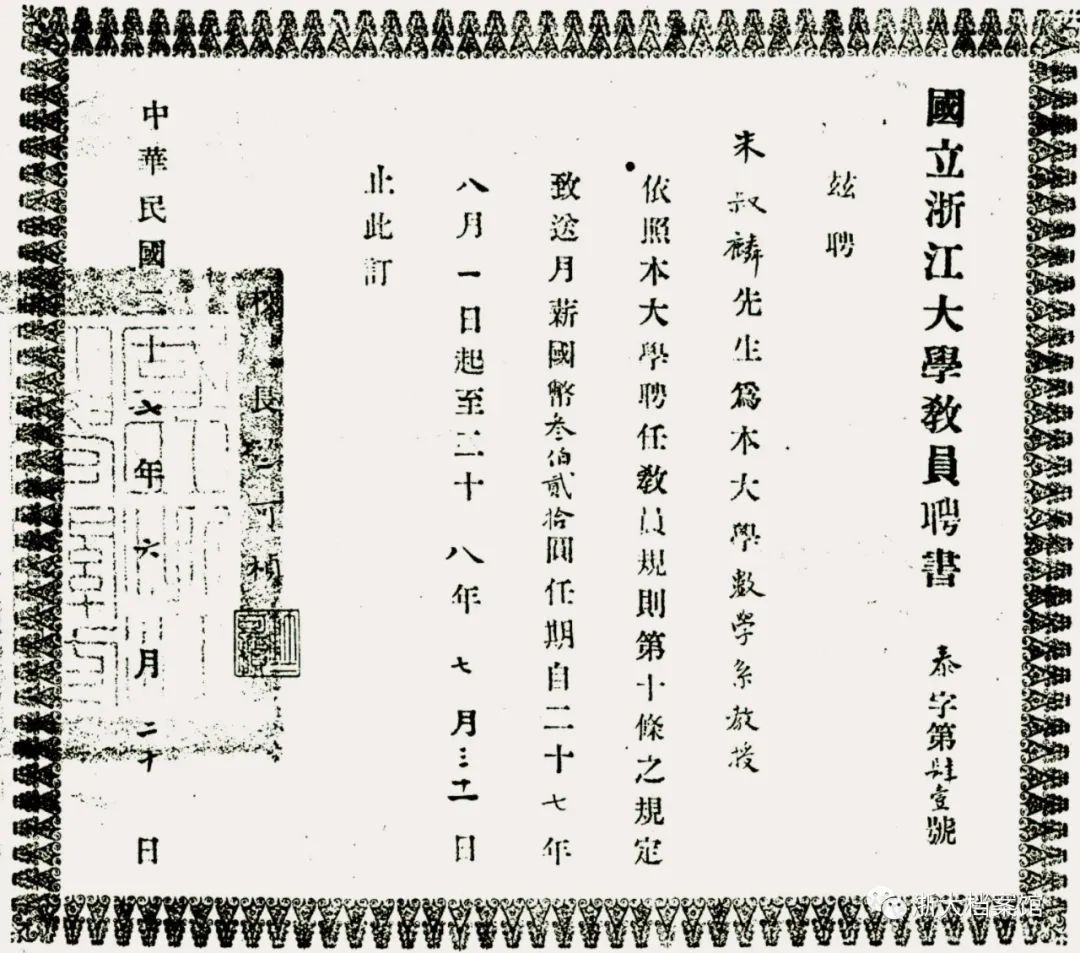 國立浙江大學教員聘書 泰字第肆壹號
茲聘
朱叔麟先生爲本大學數學系教授
依照本大學聘任教員規則第十條之規定
致送月薪國幣叁佰貳拾圓任期自二十七年
八月一日起至二十八年七月三十一日
止此訂
校長竺可楨
中華民國二十七年六月二十日
浙大档案馆